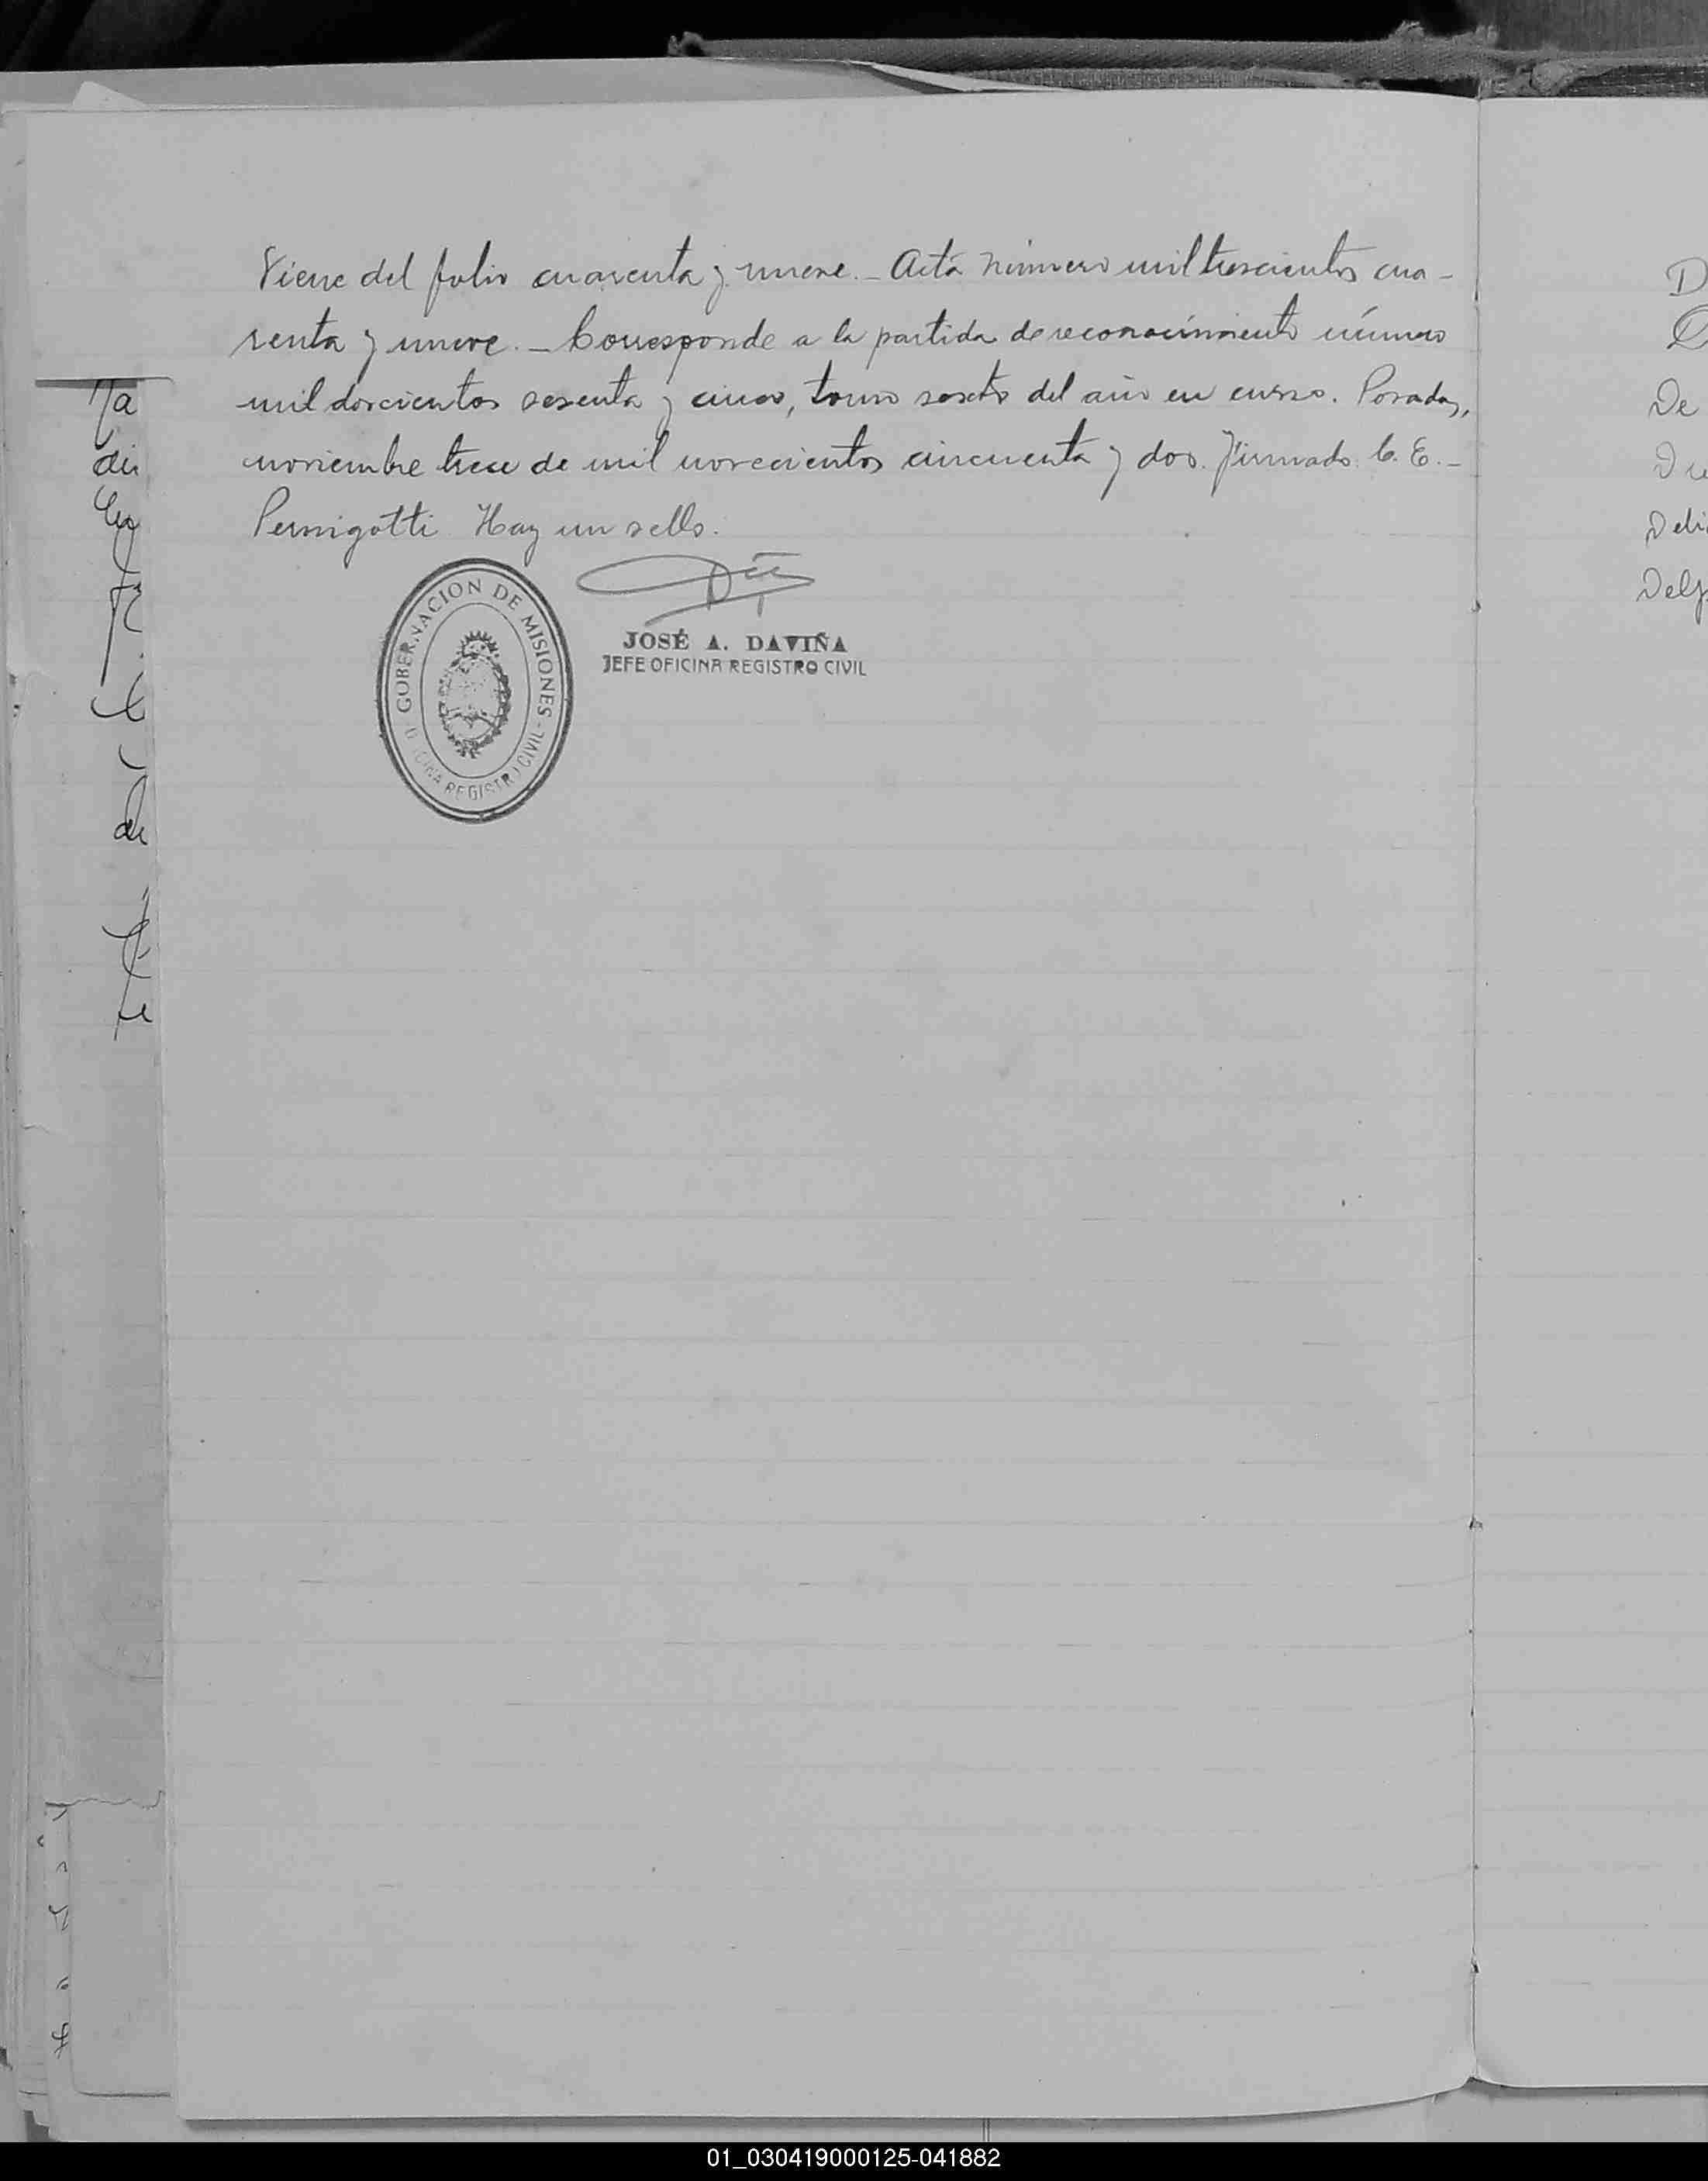 Viene del folio cuarenta y nueve. - Acta número mil trescientos cua-
renta y nueve. - Corresponde a la partida de reconocimiento número
mil doscientos sesenta y cinco, tomo sexto del año en curso. Posadas,
noviembre trece de mil novecientos cincuenta y dos. Firmado C. E. -
Pernigotti Hay un sello.
GOBERNACION DE MISIONES - OFICINA REGISTRO CIVIL -
JOSÉ A. DAVIÑA
JEFE OFICINA REGISTRO CIVIL
D
De
Deli
01_030419000125-041882